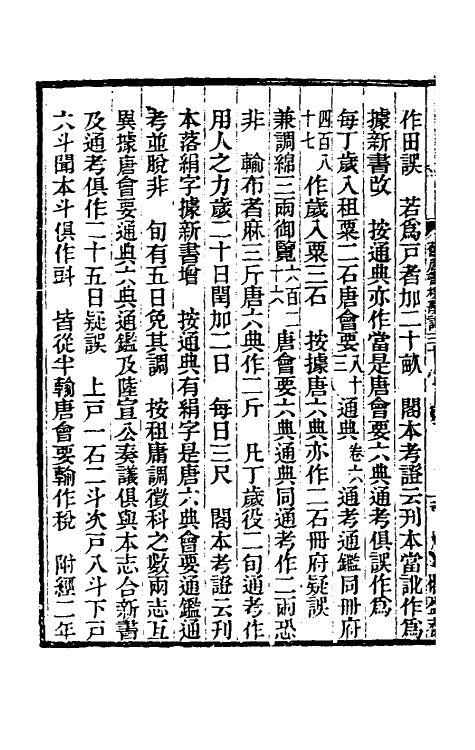 作田誤　若爲戸者加二十畝　閣本考證云刊本當訛作爲
據新書改　按通典亦作當是唐會要六典通考俱誤作爲
每丁歲入租粟二石唐會要八十三通典卷六通考通鑑同冊府
四百八十七作歲入粟三石　按據唐六典亦作二石冊府疑誤
兼調綿三兩御覽六百二十六唐會要六典通典同通考作二兩恐
非　輸布者麻三斤唐六典作二斤　凡丁歲役二旬通考作
用人之力歲二十日閏加二日　每日三尺　閣本考證云刊
本落絹字據新書增　按通典有絹字是唐六典會要通鑑通
考並脫非　旬有五日免其調　按租庸調徵科之數兩志互
異據唐會要通典六典通鑑及陸宣公奏議俱與本志合新書
及通考俱作二十五日疑誤　上戸一石二斗次戸八斗下戸
六斗聞本斗俱作㪷　皆從半輸唐會要輸作稅　附經二年